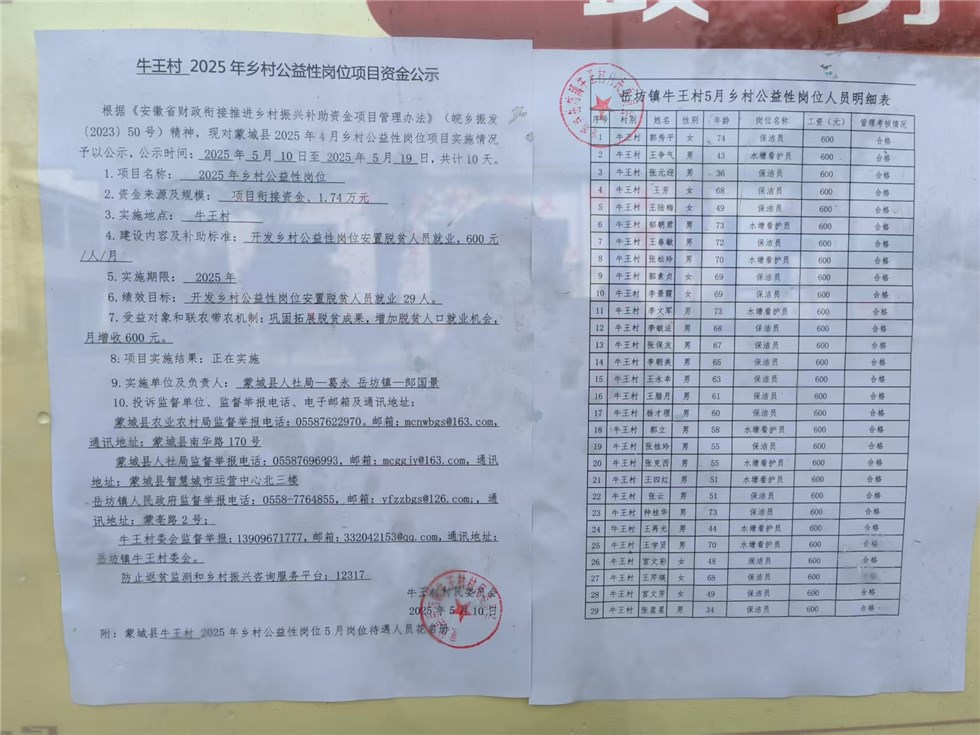 牛王村 2025年乡村公益性岗位项目资金公示
根据《安徽省财政衔接推进乡村振兴补助资金项目管理办法》（皖乡振发
〔2023〕50号）精神，现对蒙城县2025年4月乡村公益性岗位项目实施情况
予以公示，公示时间：2025年5月10日至2025年5月19日，共计10天。
1.项目名称： 2025年乡村公益性岗位
2.资金来源及规模： 项目衔接资金、1.74万元
3.实施地点： 牛王村
4.建设内容及补助标准： 开发乡村公益性岗位安置脱贫人员就业，600元
/人/月
5.实施期限： 2025年
6.绩效目标： 开发乡村公益性岗位安置脱贫人员就业 29人。
7.受益对象和联农带农机制：巩固拓展脱贫成果，增加脱贫人口就业机会，
月增收600元。
8.项目实施结果：正在实施
9.实施单位及负责人： 蒙城县人社局—葛永 岳坊镇—郎国景
10.投诉监督单位、监督举报电话、电子邮箱及通讯地址：
蒙城县农业农村局监督举报电话：05587622970。邮箱：mcnwbgs@163.com，
通讯地址：蒙城县南华路170号
蒙城县人社局监督举报电话：05587696993，邮箱：mcggjy@163.com，通讯
地址：蒙城县智慧城市运营中心北三楼
岳坊镇人民政府监督举报电话：0558-7764855，邮箱：yfzzbgs@126.com；，通
讯地址：蒙亳路2号；
牛王村委会监督举报：13909671777，邮箱：332042153@qq.com，通讯地址：
岳坊镇牛王村委会。
防止返贫监测和乡村振兴咨询服务平台：12317
牛王村村民委员会
2025年5月10日
附：蒙城县牛王村 2025年乡村公益性岗位5月岗位待遇人员花名册
岳坊镇牛王村5月乡村公益性岗位人员明细表
序号 村别 姓名 性别 年龄 岗位名称 工资（元） 管理考核情况
1 牛王村 郭秀平 女 74 保洁员 600 合格
2 牛王村 王争气 男 43 水塘看护员 600 合格
3 牛王村 张元迎 男 36 保洁员 600 合格
4 牛王村 王芳 女 68 保洁员 600 合格
5 牛王村 王陆梅 女 49 保洁员 600 合格
6 牛王村 郁朝君 男 73 水塘看护员 600 合格
7 牛王村 王春敏 男 72 保洁员 600 合格
8 牛王村 张松玲 男 70 水塘看护员 600 合格
9 牛王村 郭素贞 女 69 保洁员 600 合格
10 牛王村 李景霞 女 69 保洁员 600 合格
11 牛王村 李文军 男 73 水塘看护员 600 合格
12 牛王村 李敏法 男 68 保洁员 600 合格
13 牛王村 张保友 男 67 保洁员 600 合格
14 牛王村 李朝美 男 65 保洁员 600 合格
15 牛王村 王永幸 男 63 保洁员 600 合格
16 牛王村 王腊月 男 61 保洁员 600 合格
17 牛王村 杨才理 男 60 保洁员 600 合格
18 牛王村 郭立 男 58 水塘看护员 600 合格
19 牛王村 张桂玲 男 55 保洁员 600 合格
20 牛王村 张克西 男 55 水塘看护员 600 合格
21 牛王村 王四红 男 51 水塘看护员 600 合格
22 牛王村 张云 男 51 保洁员 600 合格
23 牛王村 钟桂华 男 73 保洁员 600 合格
24 牛王村 王再光 男 44 水塘看护员 600 合格
25 牛王村 王学贤 男 70 水塘看护员 600 合格
26 牛王村 宫文彩 女 48 保洁员 600 合格
27 牛王村 王芹瑛 女 68 保洁员 600 合格
28 牛王村 宫文芳 女 49 保洁员 600 合格
29 牛王村 张星星 男 34 保洁员 600 合格